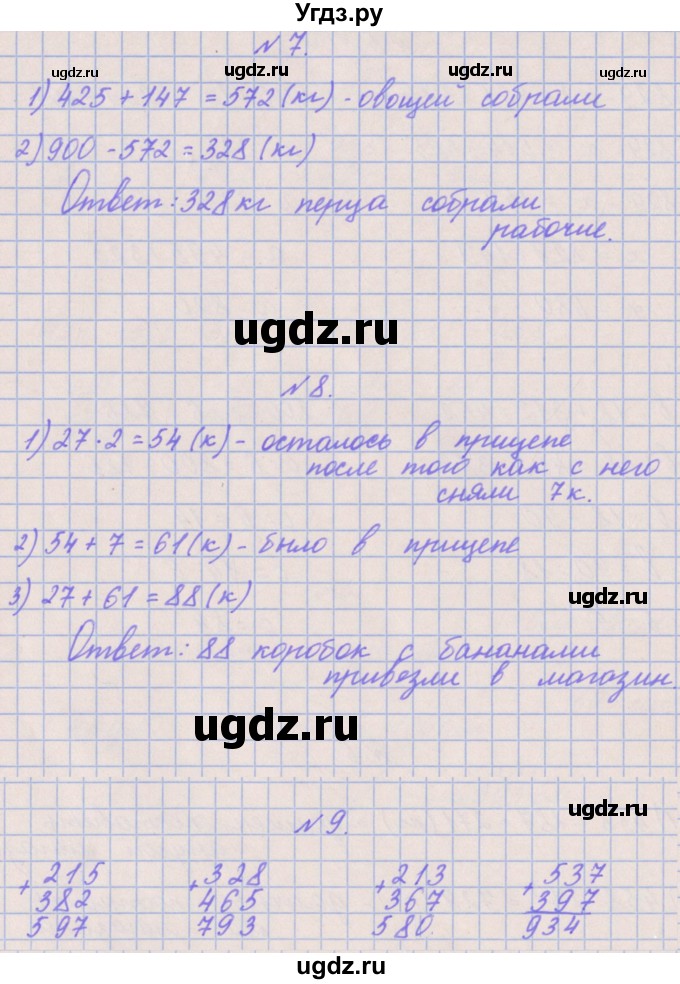 Угдз.ру
№7.
ugdz.ru ugdz.ru ugdz.ru
1) 425 + 147 = 572 (кг) - овощей собрали
2) 900 - 572 = 328 (кг)
Ответ: 328 кг перца собрали
рабочие.
ugdz.ru
№8.
1) 27 · 2 = 54 (к) - осталось в прицепе
после того как с него
сняли 7к.
2) 54 + 7 = 61 (к) - было в прицепе
3) 27 + 61 = 88 (к)
ugdz.ru
Ответ: 88 коробок с бананами
привезли в магазин.
ugdz.ru
ugdz.ru
№9.
+ 215 + 328 + 213 + 537
382 465 367 397
597 793 580. 934
ugdz.ru